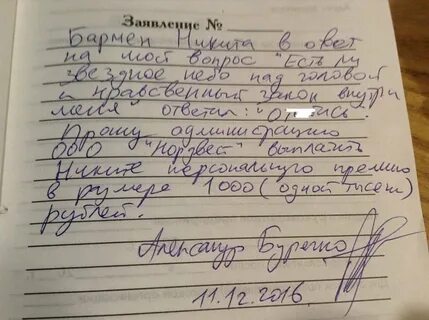 Заявление №
Бармен Никита в ответ
на мой вопрос "Есть ли
звездное небо над головой
и нравственный закон внутри
меня" ответил:
Прошу администрацию
ООО "Нордвест" выплатить
Никите персональную премию
в размере 1000 (одной тысячи)
рублей.
Александр
11.12.2016